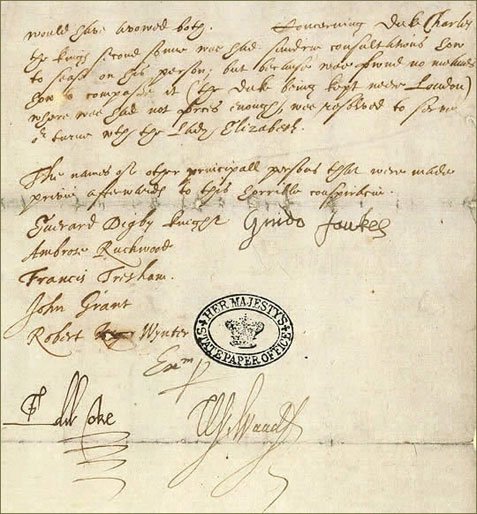 would have avowed both. Concerning Duke Charles
the kings second sonne we had sundrie consultations how
to sease on his person, but because we found no meanes
how to compasse it (the Duke being kept nere London)
where we had not forces enough, we resolved to serve
or turne with the Lady Elizabeth.
The names of other principall persons that were made
privie afterwards to this horrible conspiracie.
Everard Digby knight Guido Fawkes
Ambrose Ruckwood
Francis Tresham.
John Grant
Robert Wynter
HER MAJESTY'S
STATE PAPER OFFICE
Edw Coke
W. Waad